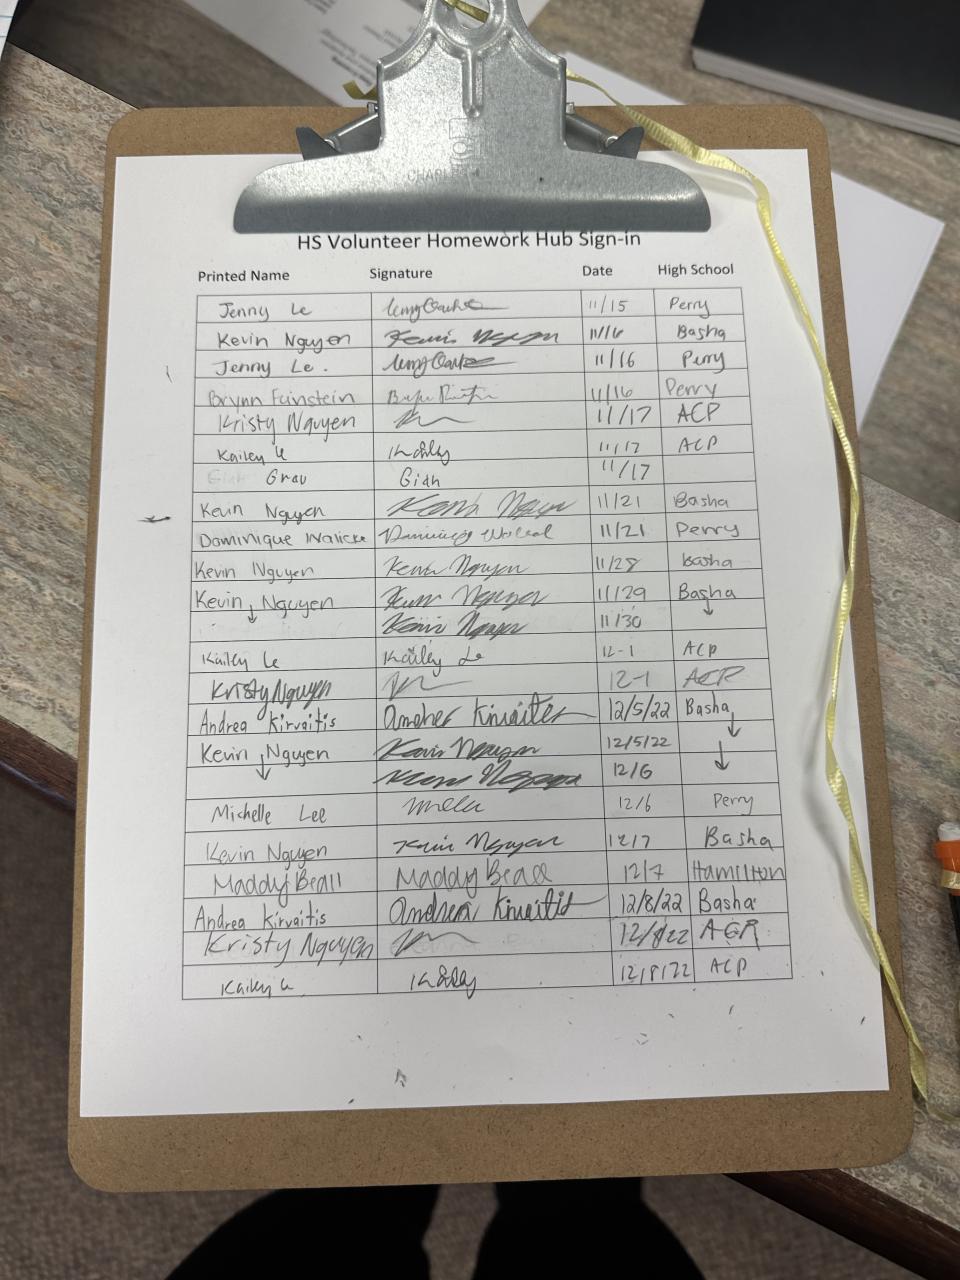 HS Volunteer Homework Hub Sign-in
Printed Name Signature Date High School
Jenny Le 11/15 Perry
Kevin Nguyen Kevin Nguyen 11/16 Basha
Jenny Le. 11/16 Perry
Brynn Feinstein 11/16 Perry
Kristy Nguyen 11/17 ACP
Kailey Le Kailey 11/17 ACP
Gian Grau Gian 11/17
Kevin Nguyen Kevin Nguyen 11/21 Basha
Dominique 11/21 Perry
Kevin Nguyen Kevin Nguyen 11/28 Basha
Kevin Nguyen Kevin Nguyen 11/29 Basha
↓ Kevin Nguyen 11/30 ↓
Kailey Le Kailey Le 12-1 ACP
Kristy Nguyen 12-1 ACP
Andrea Kirvaitis Andrea Kirvaitis 12/5/22 Basha
Kevin Nguyen Kevin Nguyen 12/5/22 ↓
↓ Kevin Nguyen 12/6 ↓
Michelle Lee 12/6 Perry
Kevin Nguyen Kevin Nguyen 12/7 Basha
Maddy Beall Maddy Beall 12/7 Hamilton
Andrea Kirvaitis Andrea Kirvaitis 12/8/22 Basha
Kristy Nguyen 12/8/22 ACP
Kailey Le Kailey 12/8/22 ACP